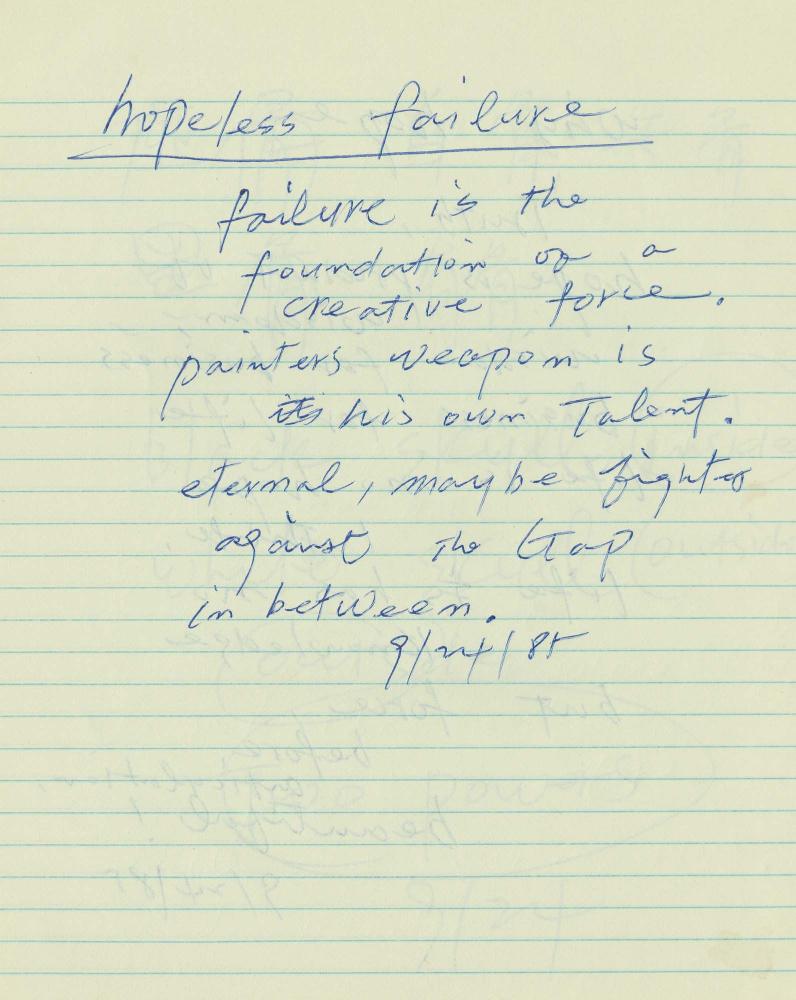 hopeless failure
failure is the
foundation of a
creative force.
painters weapon is
his own Talent.
eternal, maybe fights
against The Gap
in between.
9/24/85